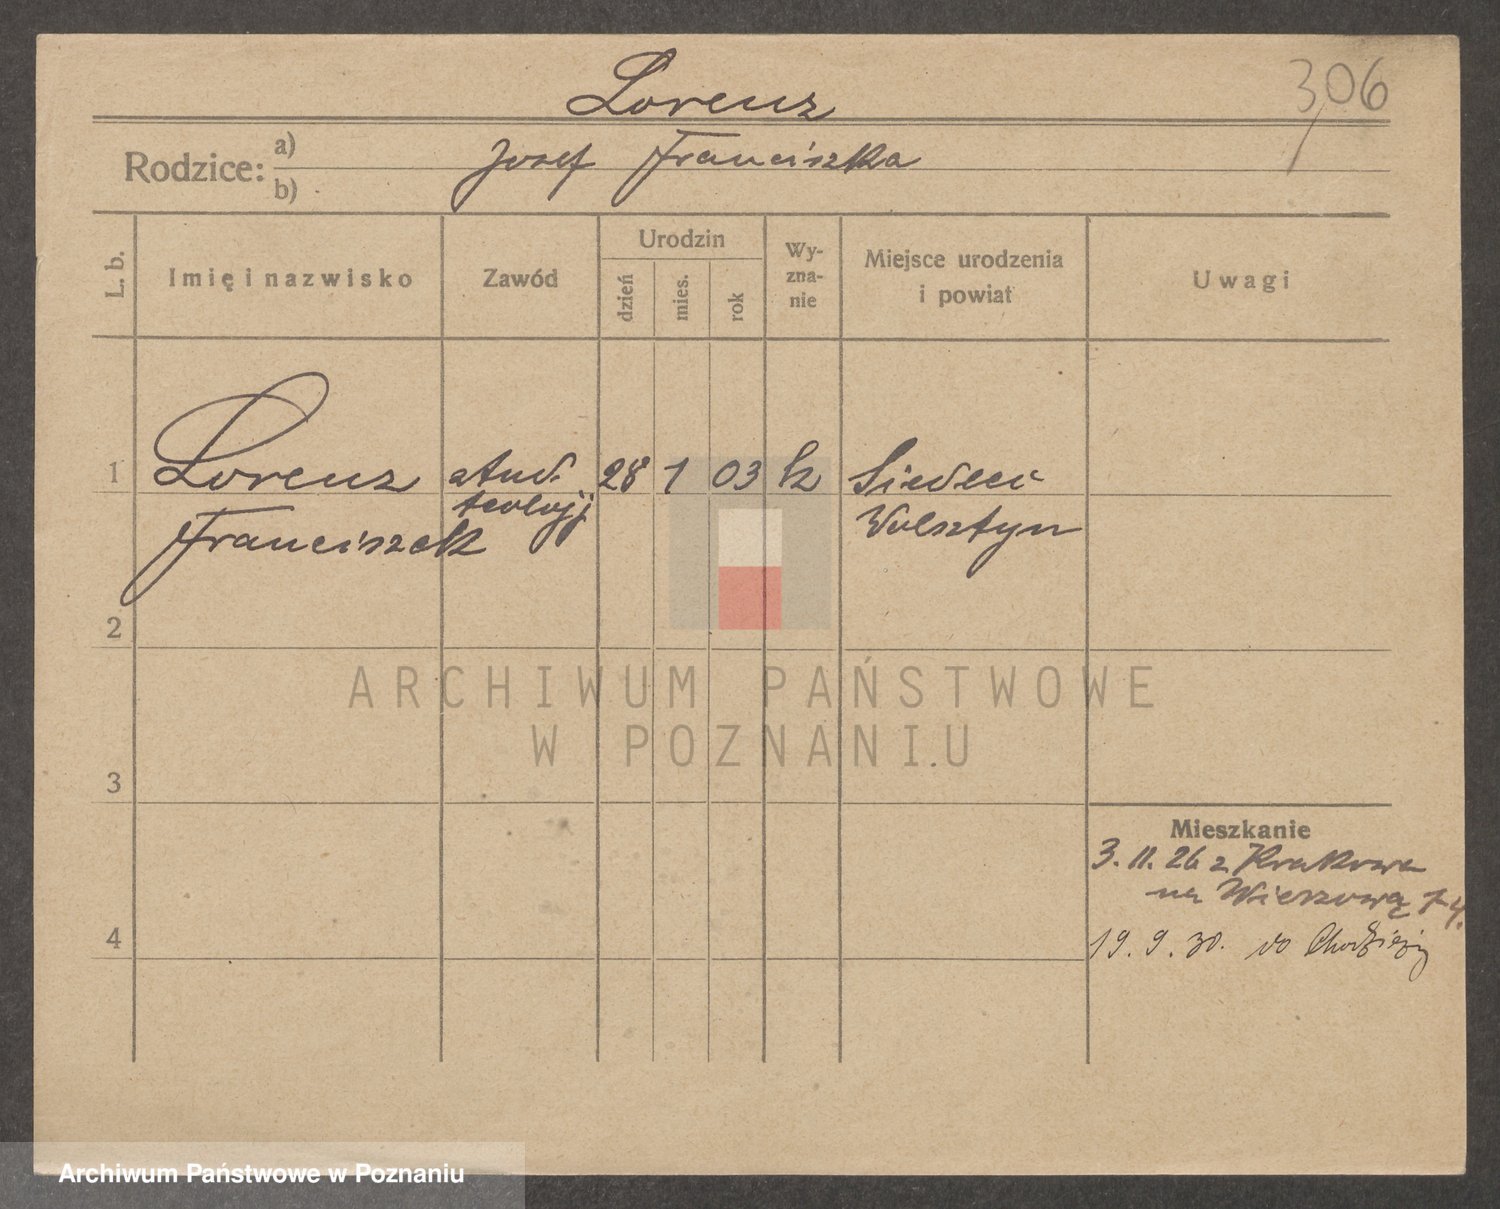 Lorenz
306
Rodzice: a) b)
Josef Franciszka
L. b.
Imię i nazwisko
Zawód
Urodzin
dzień
mies.
rok
Wy-
zna-
nie
Miejsce urodzenia
i powiat
Uwagi
1 Lorenz stud. 28 1 03 k Siedlec
teologji
Franciszek Wolsztyn
2
ARCHIWUM PAŃSTWOWE
W POZNANIU
3
Mieszkanie
3. 11. 26 z Krakowa
na Wieszową
4
19. 9. 30. do Chodzieży
Archiwum Państwowe w Poznaniu